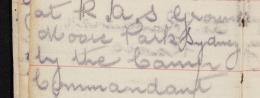 at R.A.S Ground
Moore Park Sydney
by the Camp
Commandant